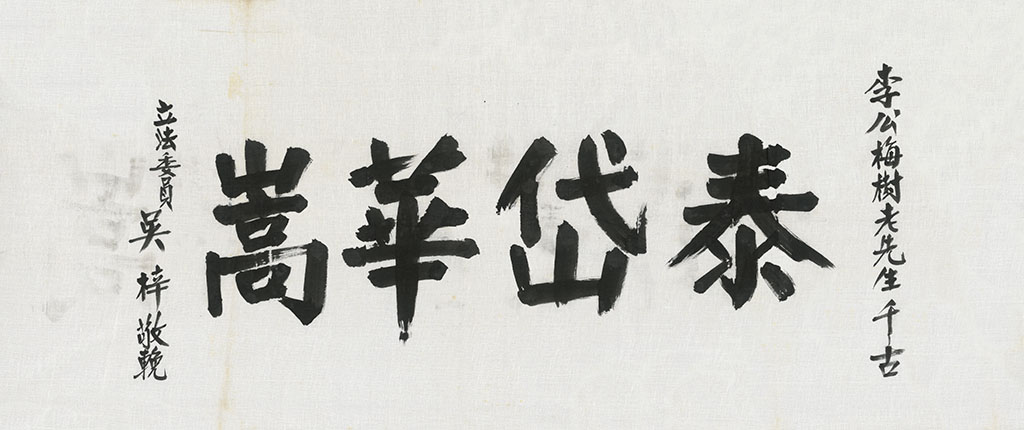 李公梅樹老先生千古
泰岱華嵩
立法委員 吳梓敬輓